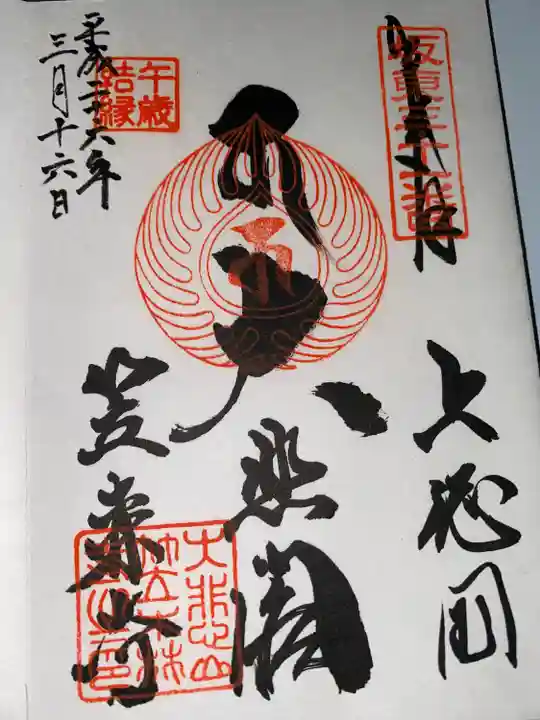 坂東三十一番
上総国
大悲閣
笠森寺
大悲山
笠森
午歳
結縁
平成二十六年
三月十六日